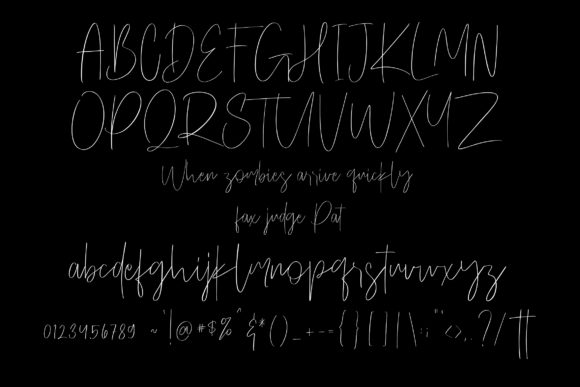 ABCDEFGHIJKLMN
OPQRSTUVWXYZ
When zombies arrive quickly
fax judge Pat
abcdefghijklmnopqrstuvwxyz
0123456789 ~`!@#$%^&*()_+-={}[]|\:;"'<>,.?/¶